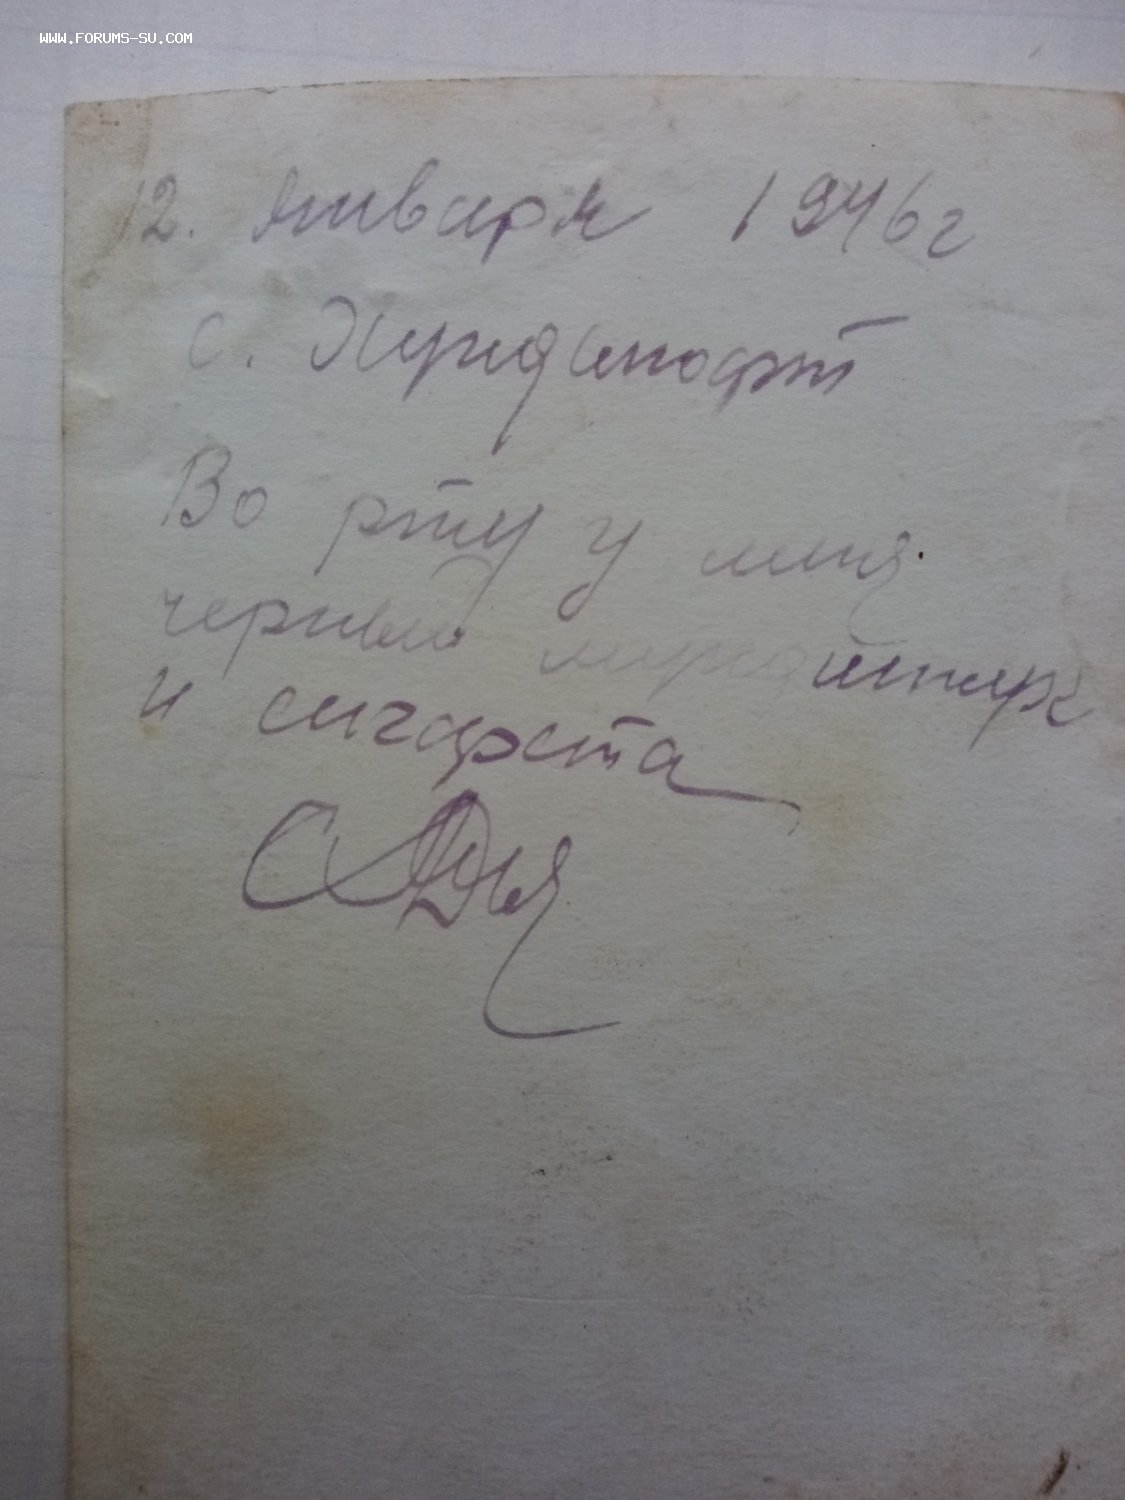 WWW.FORUMS-SU.COM
12. января 1946г
с.
Во рту у меня
черный мундштук
и сигарета